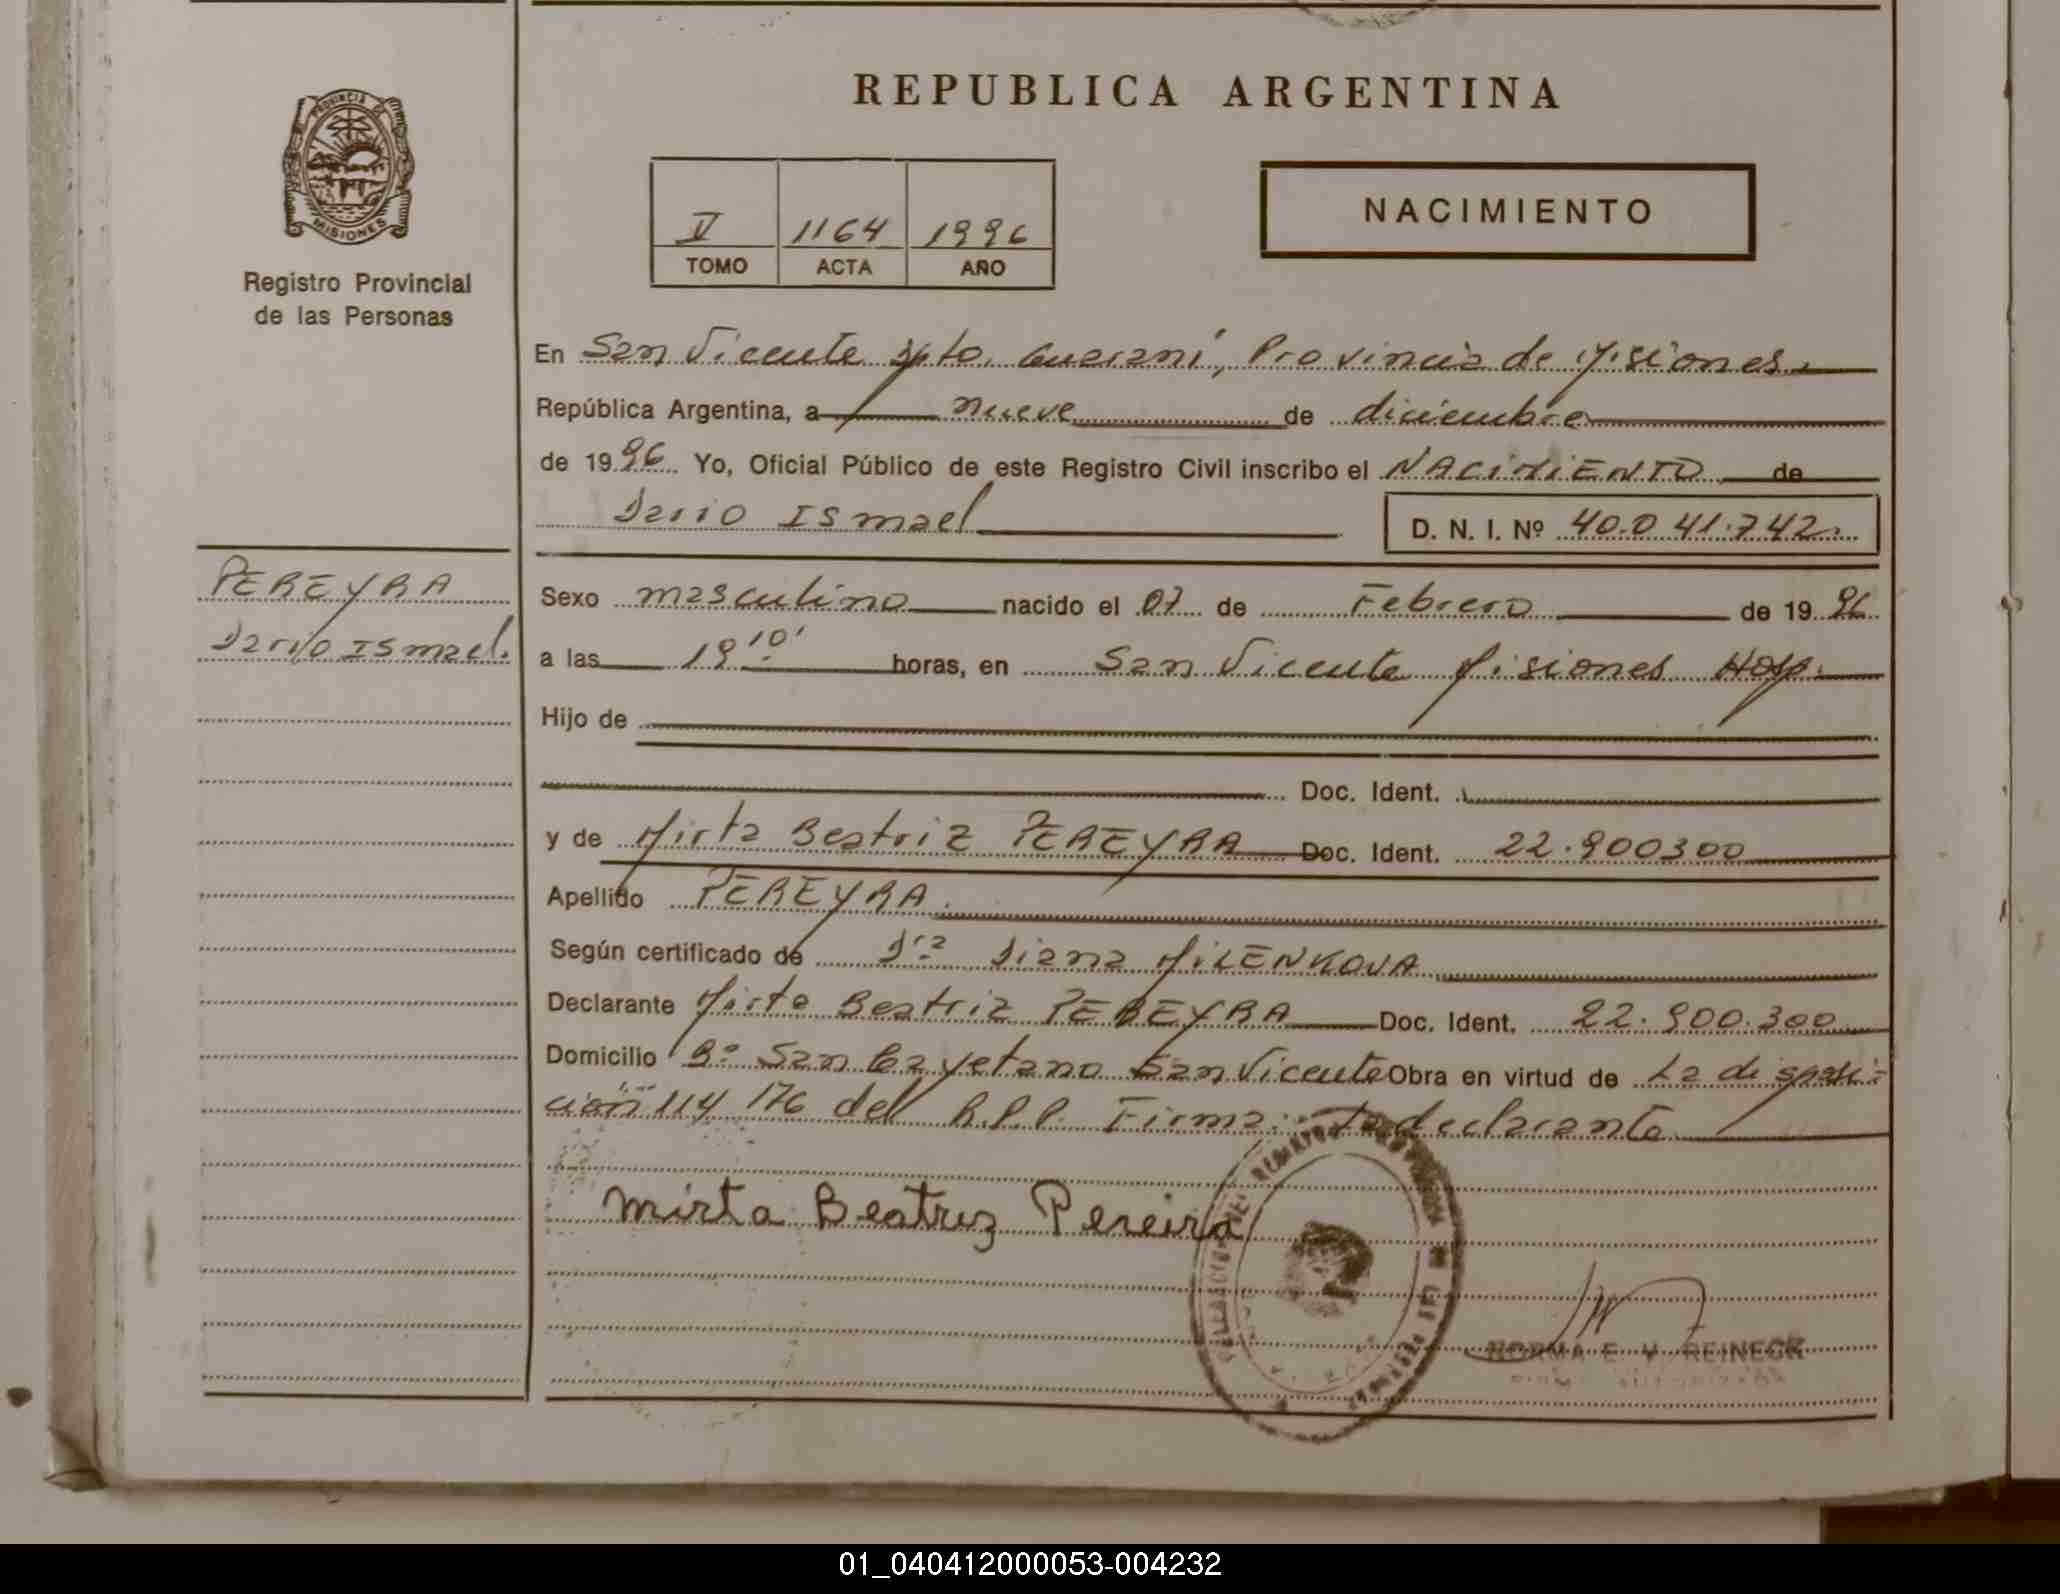 REPUBLICA ARGENTINA
PROVINCIA DE
MISIONES
Registro Provincial
de las Personas
V 1164 1996
TOMO ACTA AÑO
NACIMIENTO
En San Vicente Dpto. Guaraní, Provincia de Misiones
República Argentina, a nueve de diciembre
de 1996 Yo, Oficial Público de este Registro Civil inscribo el NACIMIENTO de
Dario ISmael D. N. I. Nº 40.041.742
PEREYRA
Dario ISmael.
Sexo masculino nacido el 07 de Febrero de 1996
a las 19 10' horas, en San Vicente Misiones Hosp.
Hijo de
Doc. Ident.
y de Mirta Beatriz PEREYRA Doc. Ident. 22.900300
Apellido PEREYRA.
Según certificado de Dra Diana MILENKOVA
Declarante Mirta Beatriz PEREYRA Doc. Ident. 22.900.300
Domicilio Bº San Cayetano San Vicente Obra en virtud de La disposi-
ción 114/76 del R.P.P. Firma: La declarante
Mirta Beatriz Pereira
NORMA E. V. REINECK
01_040412000053-004232